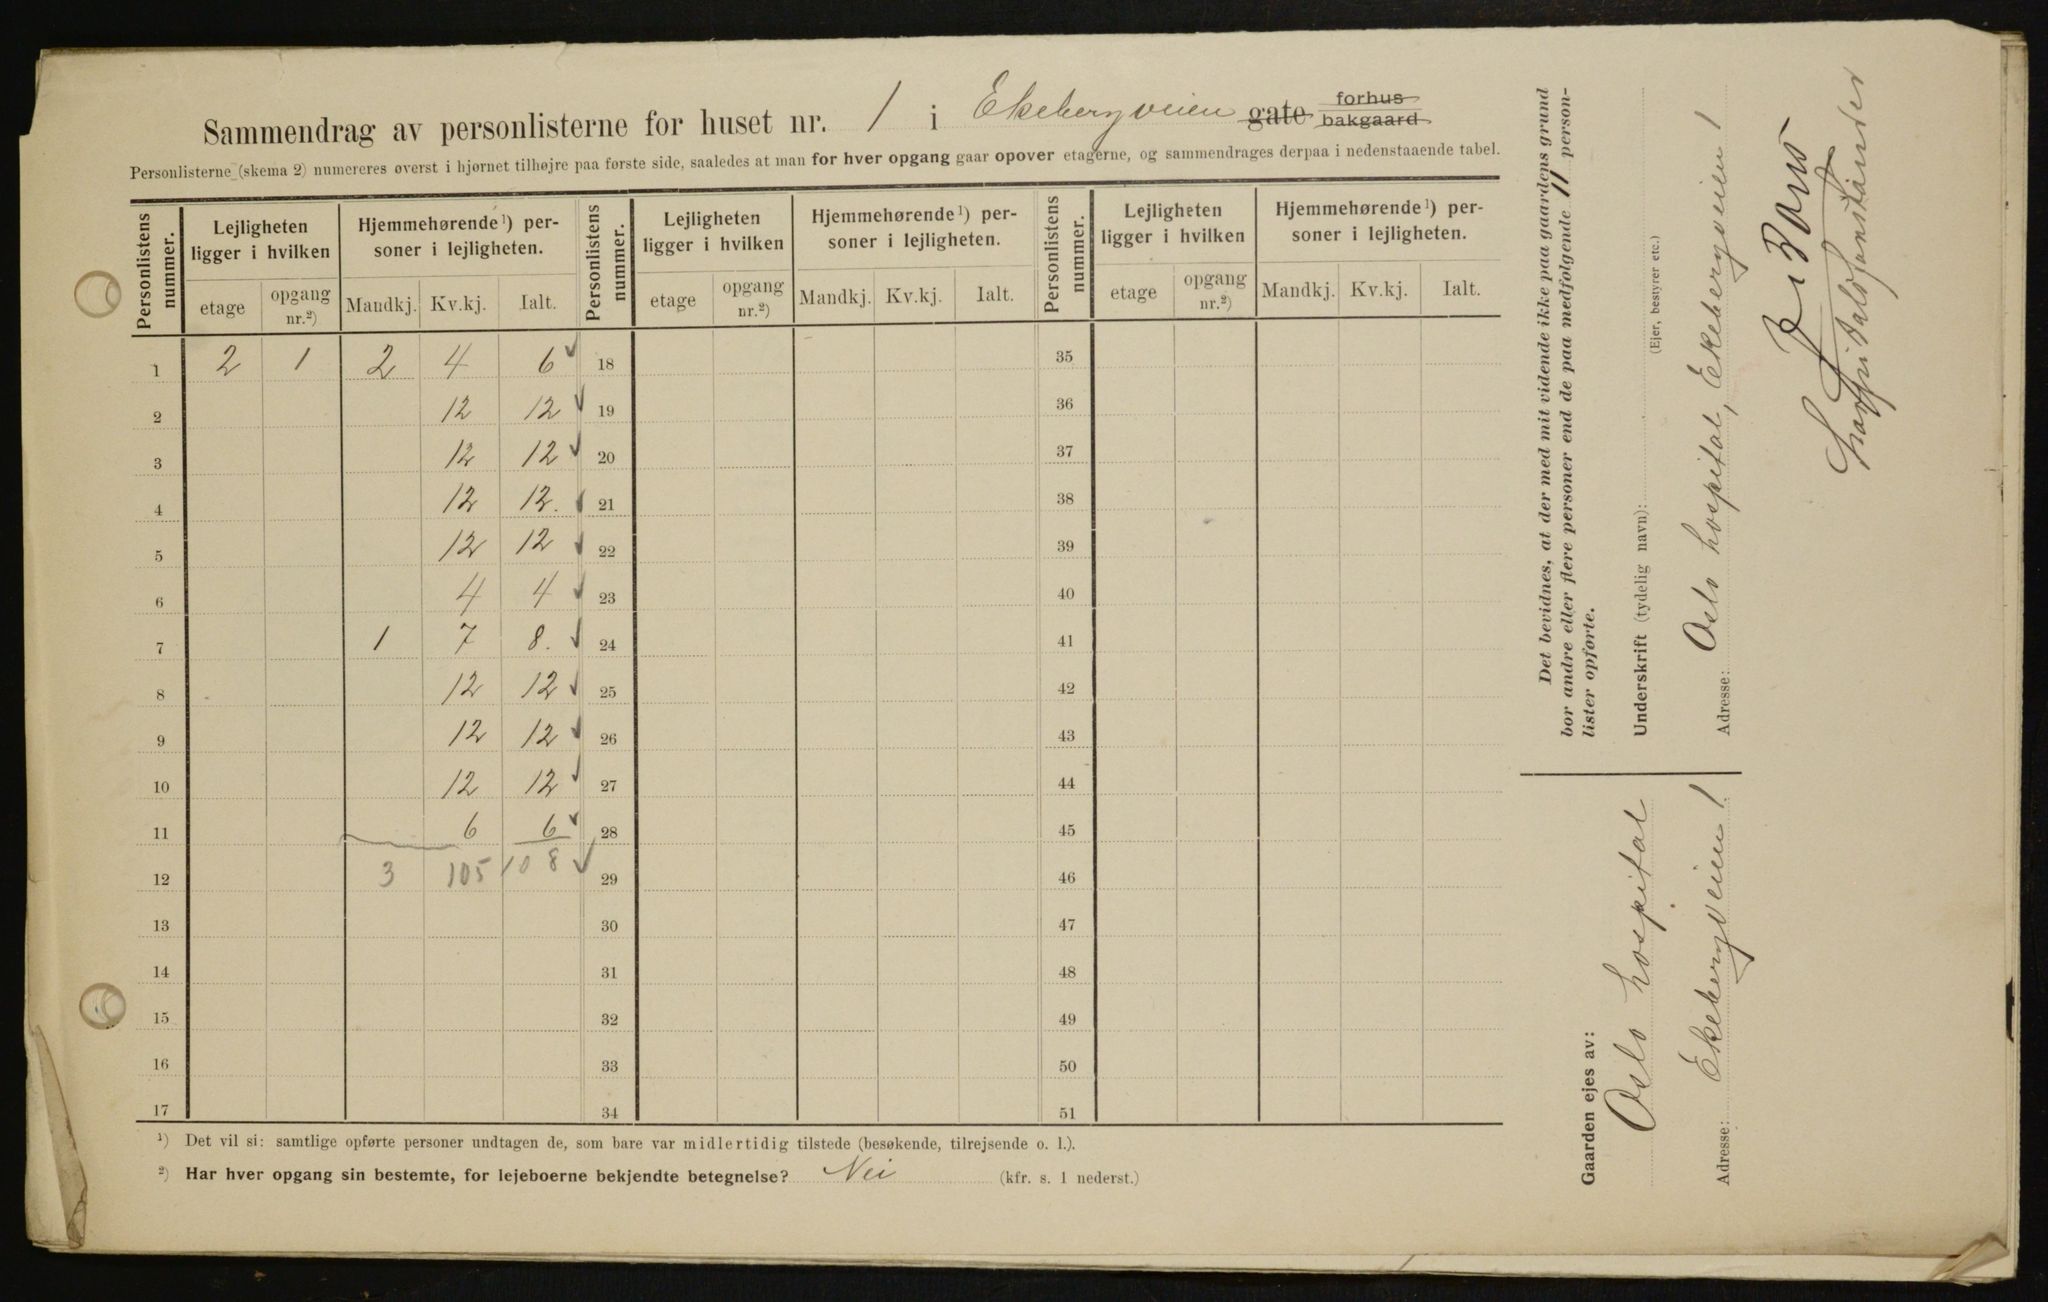 Sammendrag av personlisterne for huset nr. 1 i Ekebergveien gate forhus bakgaard
Personlisterne (skema 2) numereres øverst i hjørnet tilhøjre paa første side, saaledes at man for hver opgang gaar opover etagerne, og sammendrages derpaa i nedenstaaende tabel.
Personlistens nummer. Lejligheten ligger i hvilken Hjemmehørende¹) personer i lejligheten. Personlistens nummer. Lejligheten ligger i hvilken Hjemmehørende¹) personer i lejligheten. Personlistens nummer. Lejligheten ligger i hvilken Hjemmehørende¹) personer i lejligheten.
etage opgang nr.²) Mandkj. Kv.kj. Ialt. etage opgang nr.²) Mandkj. Kv.kj. Ialt. etage opgang nr.²) Mandkj. Kv.kj. Ialt.
1 2 1 2 4 6 18 35
2 12 12 19 36
3 12 12 20 37
4 12 12. 21 38
5 12 12 22 39
6 4 4 23 40
7 1 7 8. 24 41
8 12 12 25 42
9 12 12 26 43
10 12 12 27 44
11 6 6 28 45
12 3 105 108 29 46
13 30 47
14 31 48
15 32 49
16 33 50
17 34 51
¹) Det vil si: samtlige opførte personer undtagen de, som bare var midlertidig tilstede (besøkende, tilrejsende o. l.).
²) Har hver opgang sin bestemte, for lejeboerne bekjendte betegnelse? Nei (kfr. s. 1 nederst.)
Det bevidnes, at der med mit vidende ikke paa gaardens grund
bor andre eller flere personer end de paa medfølgende 11 person-
lister opførte.
Underskrift (tydelig navn):
(Ejer, bestyrer etc.)
Adresse: Oslo hospital, Ekebergveien 1
Hospitalsforstander
Gaarden ejes av:
Oslo hospital
Adresse: Ekebergveien 1